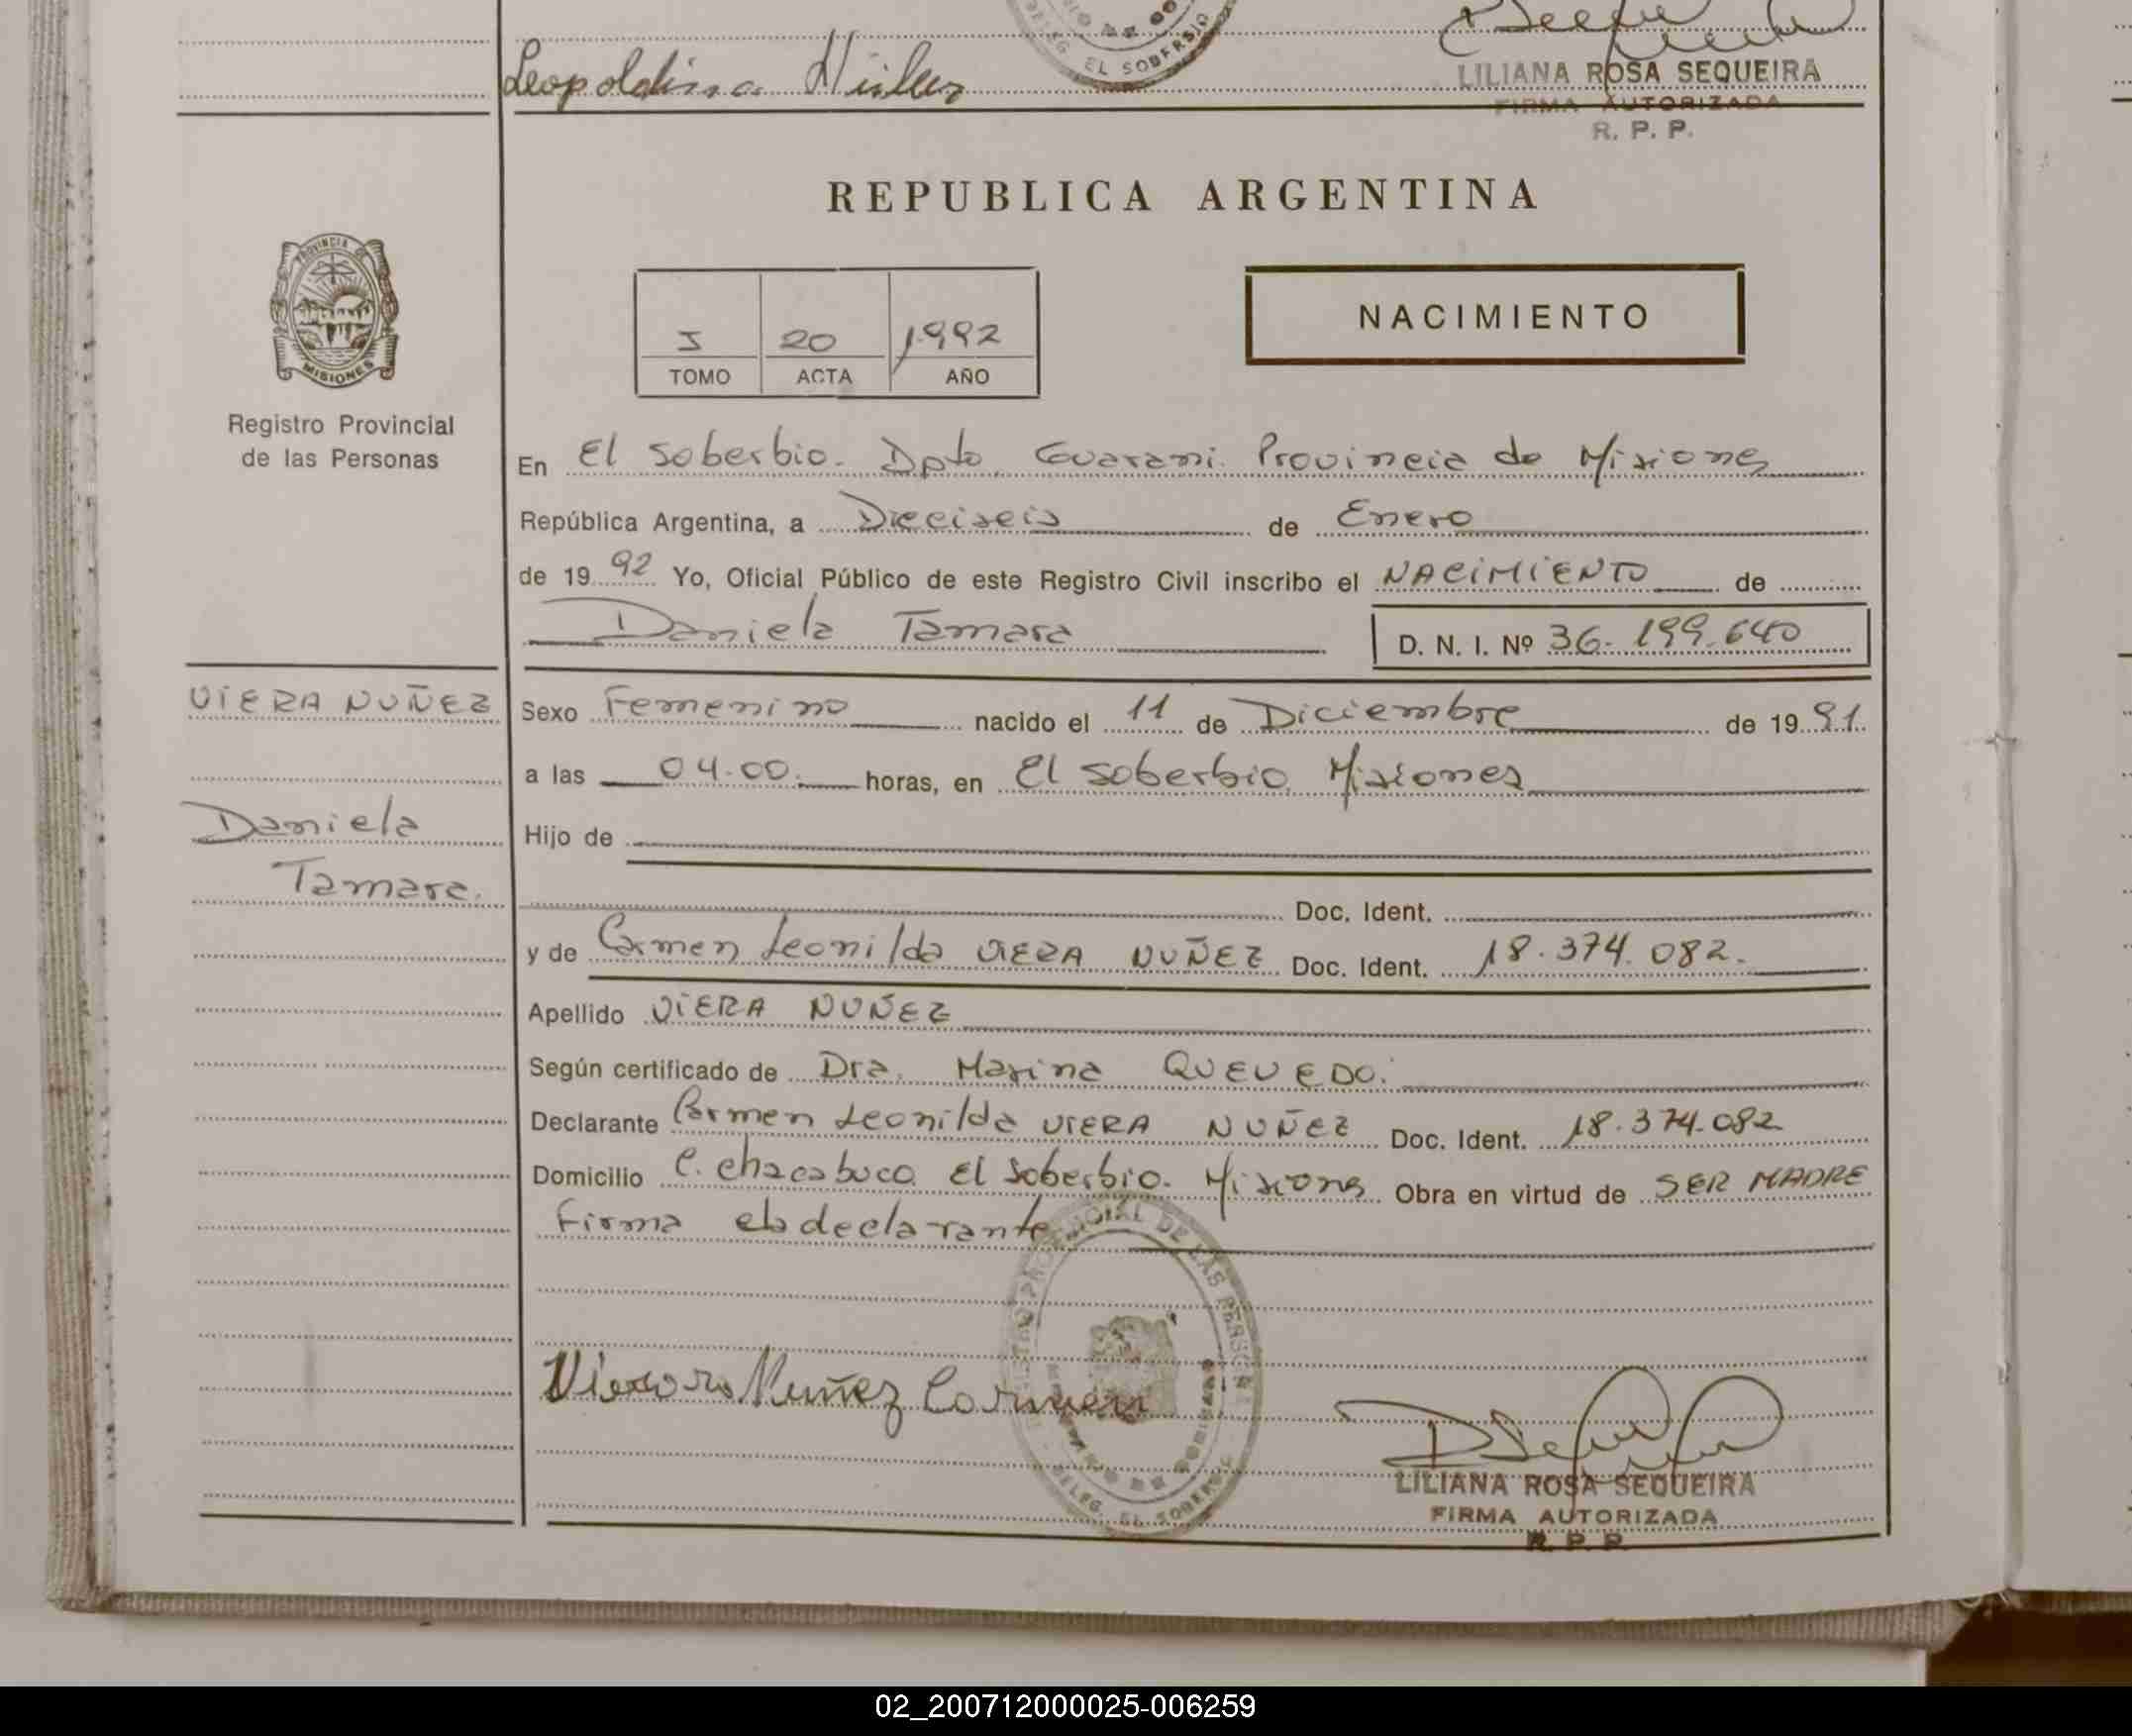 EL SOBERBIO
Leopoldina Müller
LILIANA ROSA SEQUEIRA
FIRMA AUTORIZADA
R. P. P.
REPUBLICA ARGENTINA
PROVINCIA DE
MISIONES
Registro Provincial
de las Personas
I 20 1992
TOMO ACTA AÑO
NACIMIENTO
En El Soberbio. Dpto. Guarani. Provincia de Misiones
República Argentina, a Dieciseis de Enero
de 1992 Yo, Oficial Público de este Registro Civil inscribo el NACIMIENTO de
Daniela Tamara D. N. I. Nº 36.199.640
VIERA NUÑEZ
Daniela
Tamara.
Sexo Femenino nacido el 11 de Diciembre de 1991.
a las 04.00. horas, en El Soberbio, Misiones
Hijo de
Doc. Ident.
y de Carmen Leonilda VIERA NUÑEZ Doc. Ident. 18.374.082.
Apellido VIERA NUÑEZ
Según certificado de Dra. Marina QUEVEDO.
Declarante Carmen Leonilda VIERA NUÑEZ Doc. Ident. 18.374.082
Domicilio C. Chacabuco. El Soberbio. Misiones Obra en virtud de SER MADRE
Firma la declarante
Nuñez Carmen
LILIANA ROSA SEQUEIRA
FIRMA AUTORIZADA
R. P. P.
02_200712000025-006259